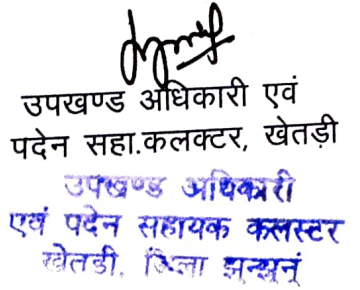 उपखण्ड अधिकारी एवं
पदेन सहा.कलक्टर, खेतड़ी
उपखण्ड अधिकारी
एवं पदेन सहायक कलस्टर
खेतडी, जिला झुन्झुनूं